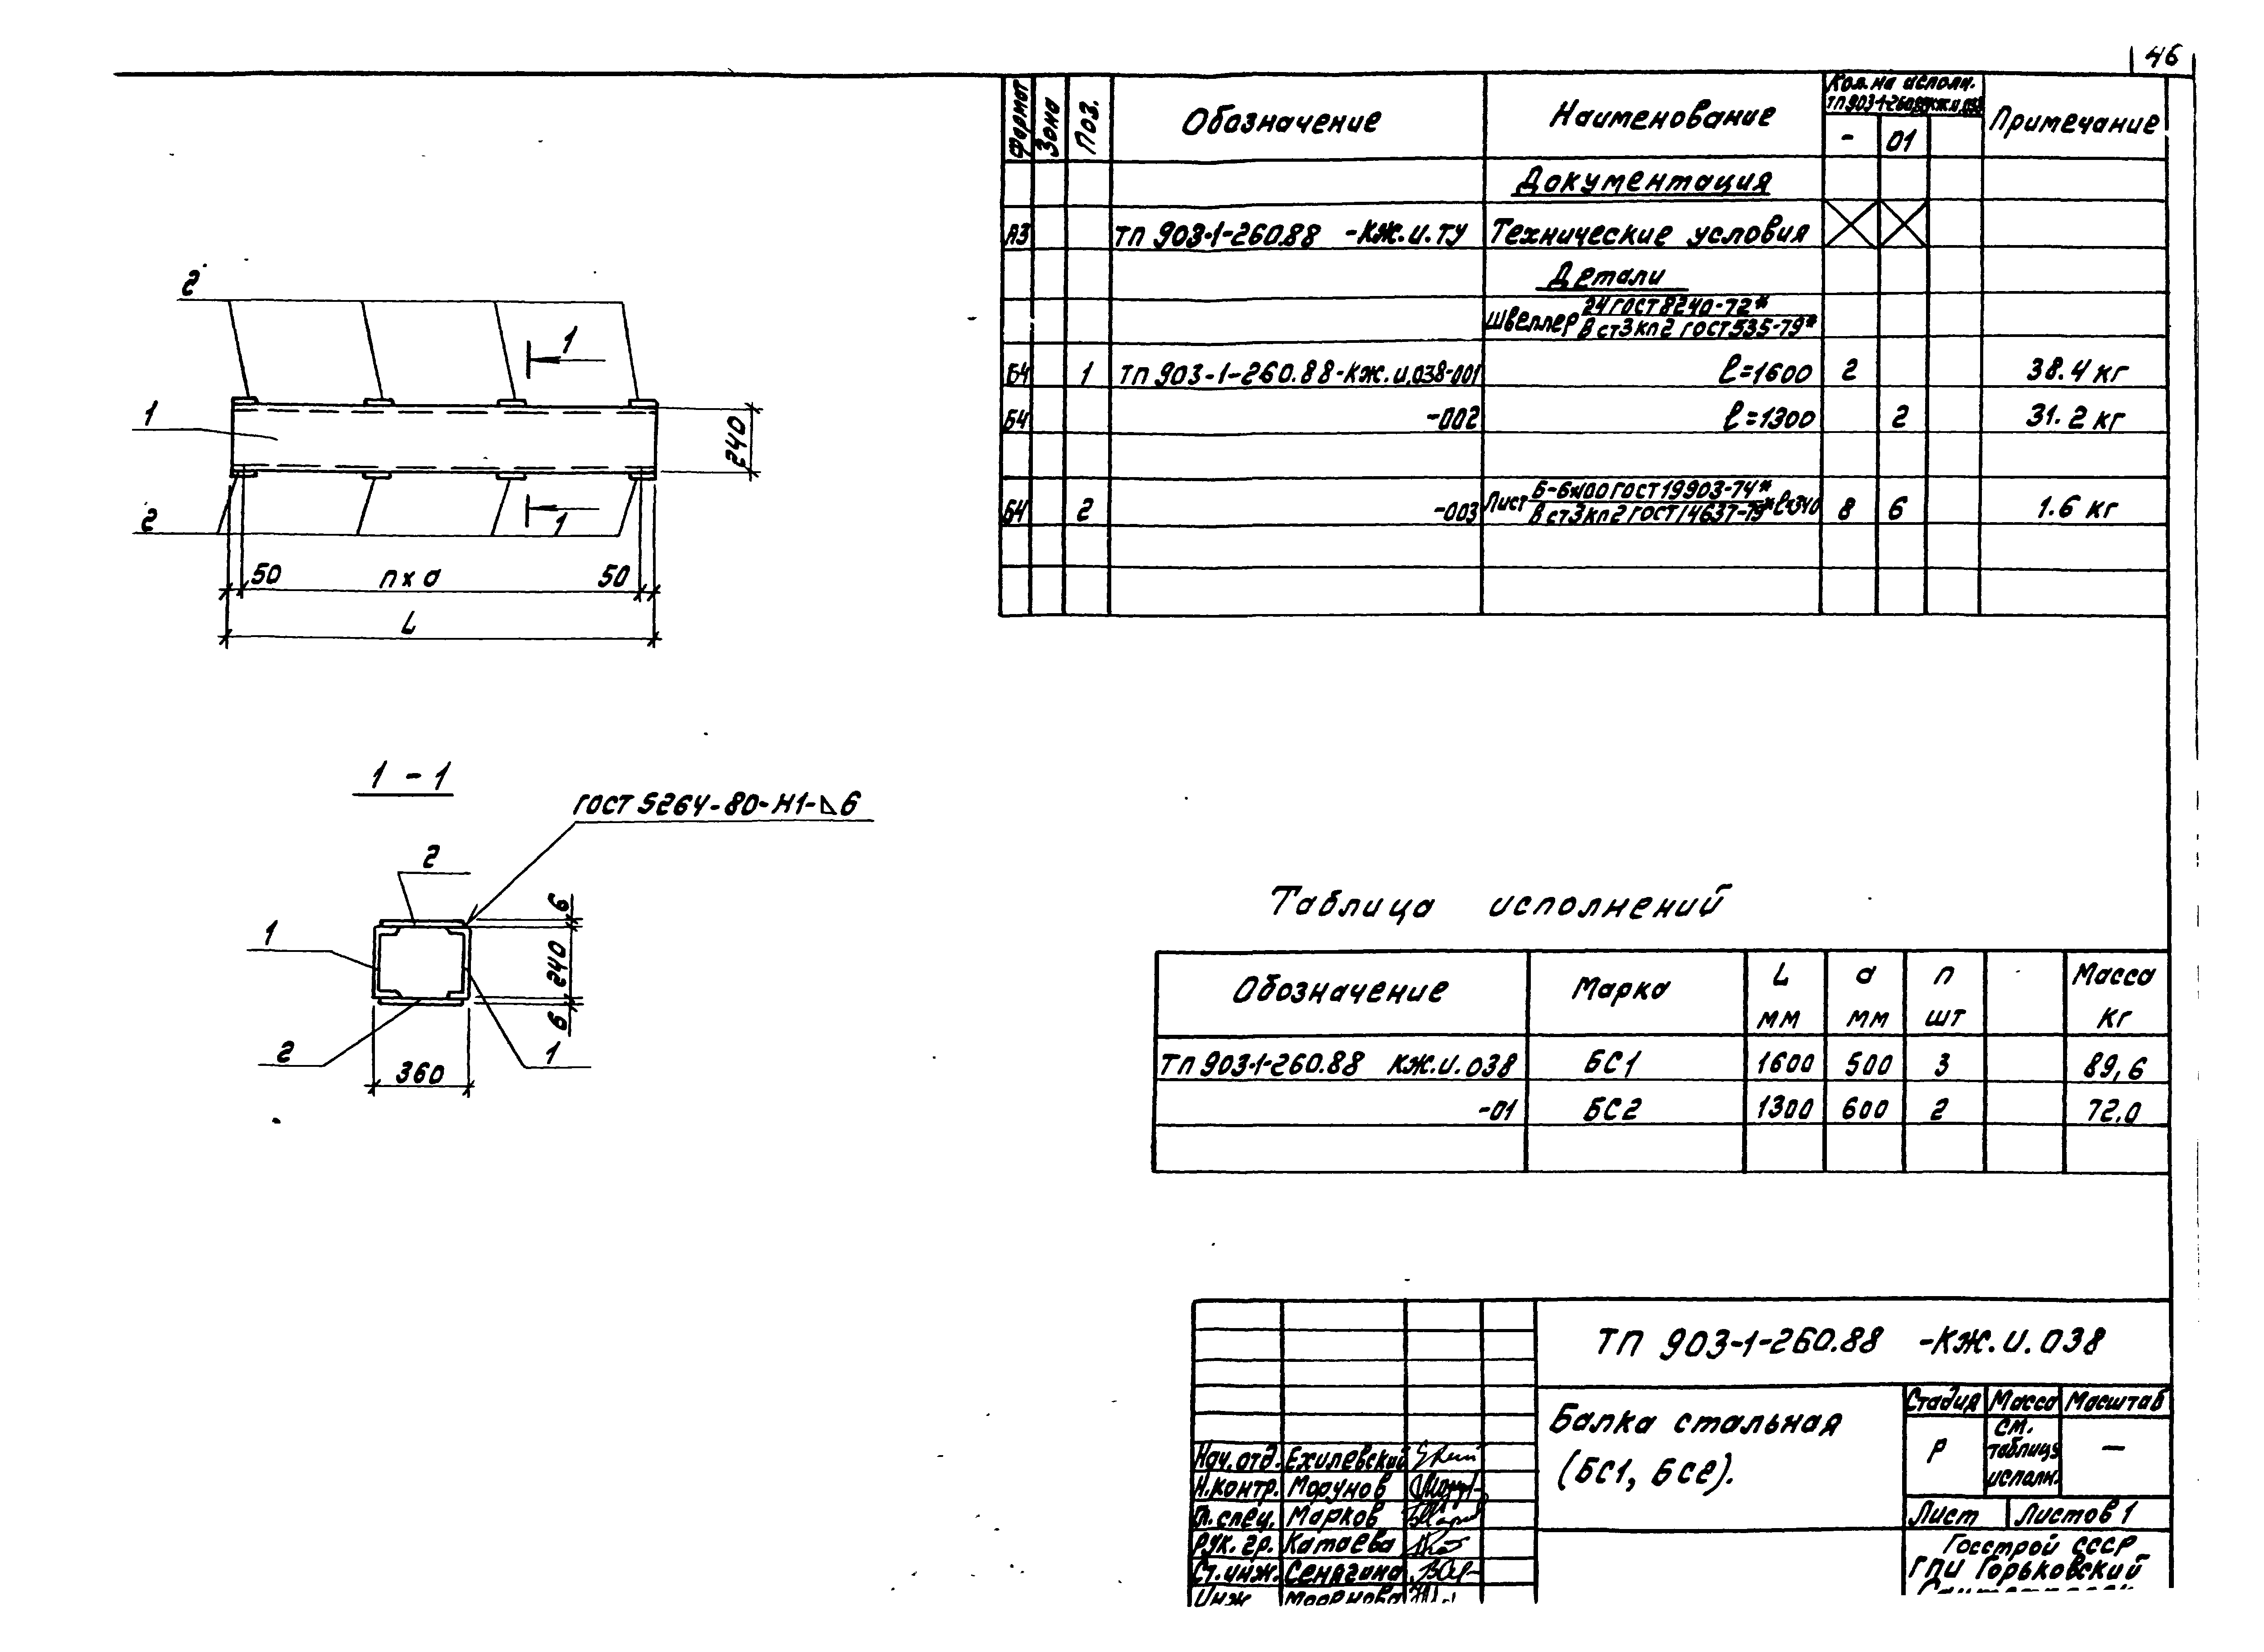 46
Формат Зона Поз. Обозначение Наименование Кол. на исполн. Примечание
ТП 903-1-260.88 КЖ.И.038
- 01
Документация
А3 ТП 903-1-260.88 -КЖ.И.ТУ Технические условия
Детали
Швеллер 24 ГОСТ 8240-72*
В ст3 кп2 ГОСТ 535-79*
Б4 1 ТП 903-1-260.88-КЖ.И.038-001 ℓ=1600 2 38.4 кг
Б4 -002 ℓ=1300 2 31.2 кг
Б4 2 -003 Лист Б-6х100 ГОСТ 19903-74* ℓ=340 8 6 1.6 кг
В ст3 кп2 ГОСТ 14637-79*
2
1
1
240
2
1
50 n x a 50
L
1 - 1
ГОСТ 5264-80-Н1-⊿6
2
6
1
240
6
2
1
360
Таблица исполнений
Обозначение Марка L a n Масса
мм мм шт кг
ТП 903-1-260.88 КЖ.И.038 БС1 1600 500 3 89,6
-01 БС2 1300 600 2 72,0
ТП 903-1-260.88 -КЖ.И.038
Балка стальная
(БС1, БС2).
Стадия Масса Масштаб
Р см. таблицу исполн. —
Лист Листов 1
Госстрой СССР
ГПИ Горьковский
Нач. отд. Ехилевский
Н.контр. Морунов
Гл. спец. Марков
Рук. гр. Катаева
Ст.инж. Сенягина
Инж